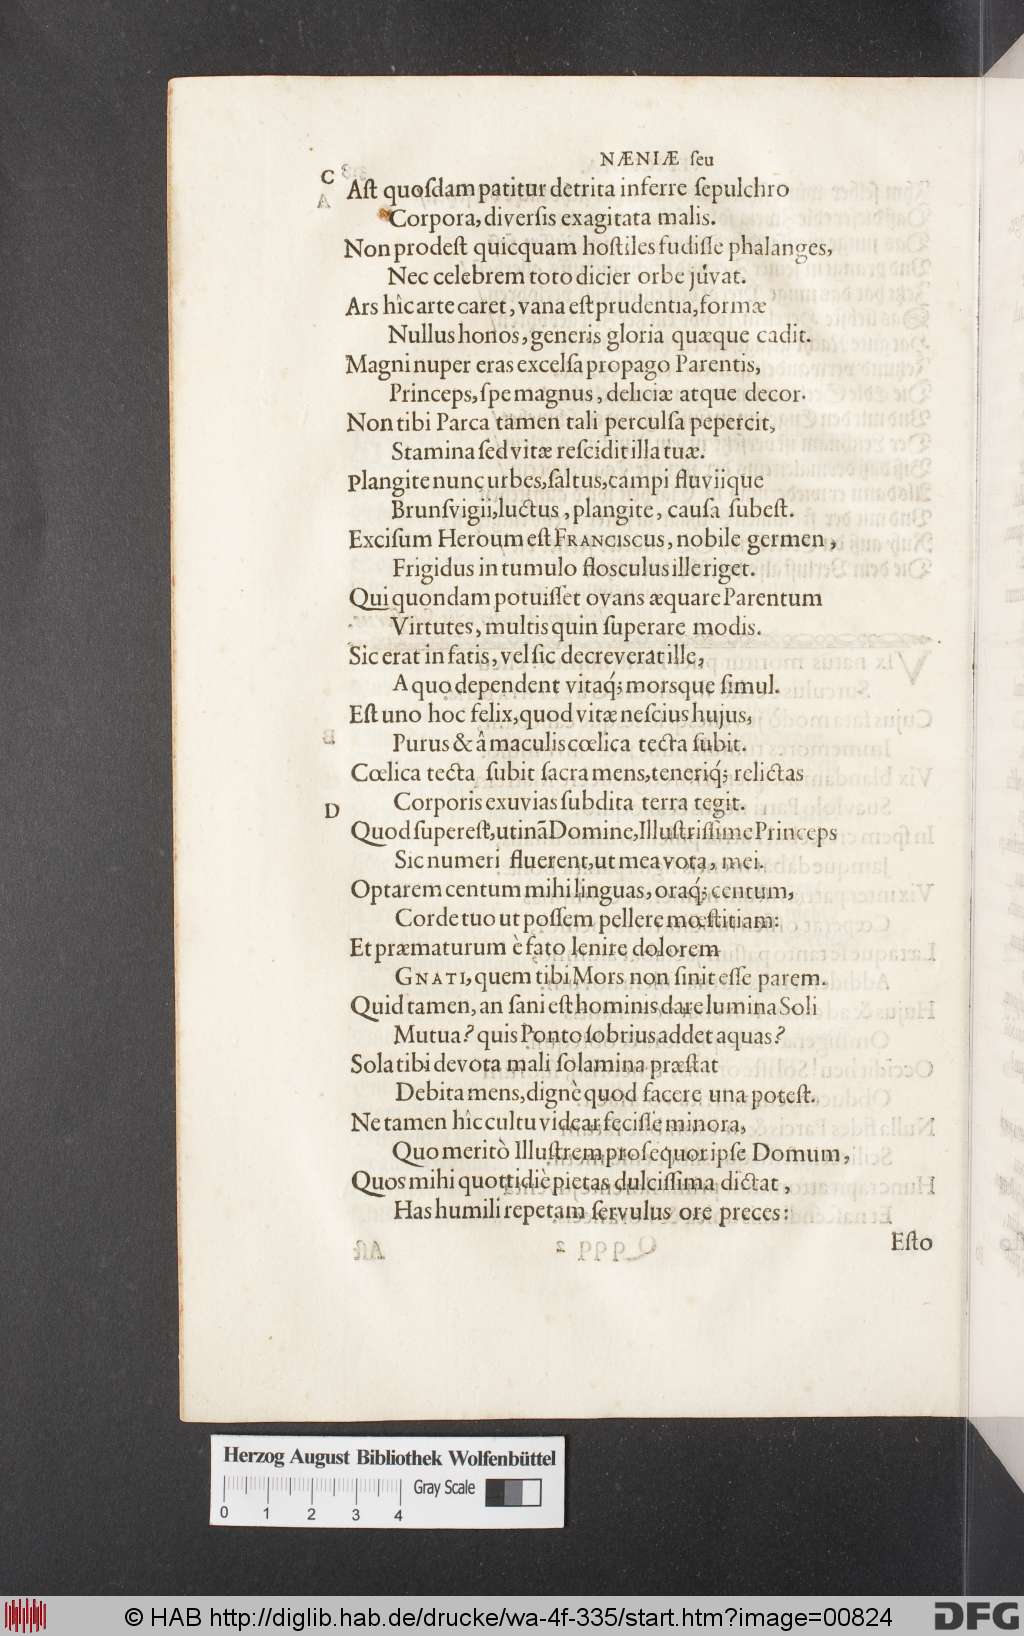 NÆNIÆ ſeu
C
Aſt quoſdam patitur detrita inferre ſepulchro
Corpora, diverſis exagitata malis.
Non prodeſt quicquam hoſtiles fudiſſe phalanges,
Nec celebrem toto dicier orbe juvat.
Ars hîc arte caret, vana eſt prudentia, formæ
Nullus honos, generis gloria quæque cadit.
Magni nuper eras excelſa propago Parentis,
Princeps, ſpe magnus, deliciæ atque decor.
Non tibi Parca tamen tali perculſa pepercit,
Stamina ſed vitæ reſcidit illa tuæ.
Plangite nunc urbes, ſaltus, campi fluviique
Brunſvigii, luctus, plangite, cauſa ſubeſt.
Exciſum Heroum eſt FRANCISCUS, nobile germen,
Frigidus in tumulo floſculus ille riget.
Qui quondam potuiſſet ovans æquare Parentum
Virtutes, multis quin ſuperare modis.
Sic erat in fatis, vel ſic decreverat ille,
A quo dependent vitaq́; morsque ſimul.
Eſt uno hoc felix, quod vitæ neſcius hujus,
Purus & â maculis cœlica tecta ſubit.
Cœlica tecta ſubit ſacra mens, teneriq́; relictas
Corporis exuvias ſubdita terra tegit.
D
Quod ſupereſt, utinã Domine, Illuſtriſſime Princeps
Sic numeri fluerent, ut mea vota, mei.
Optarem centum mihi linguas, oraq́; centum,
Corde tuo ut poſſem pellere mœſtitiam:
Et præmaturum è fato lenire dolorem
GNATI, quem tibi Mors non ſinit eſſe parem.
Quid tamen, an ſani eſt hominis, dare lumina Soli
Mutua? quis Ponto ſobrius addet aquas?
Sola tibi devota mali ſolamina præſtat
Debita mens, dignè quod facere una poteſt.
Ne tamen hîc cultu videar feciſſe minora,
Quo meritò Illuſtrem proſequor ipſe Domum,
Quos mihi quottidiè pietas dulciſſima dictat,
Has humili repetam ſervulus ore preces:
Eſto
Herzog August Bibliothek Wolfenbüttel
Gray Scale
0 1 2 3 4
© HAB http://diglib.hab.de/drucke/wa-4f-335/start.htm?image=00824
DFG